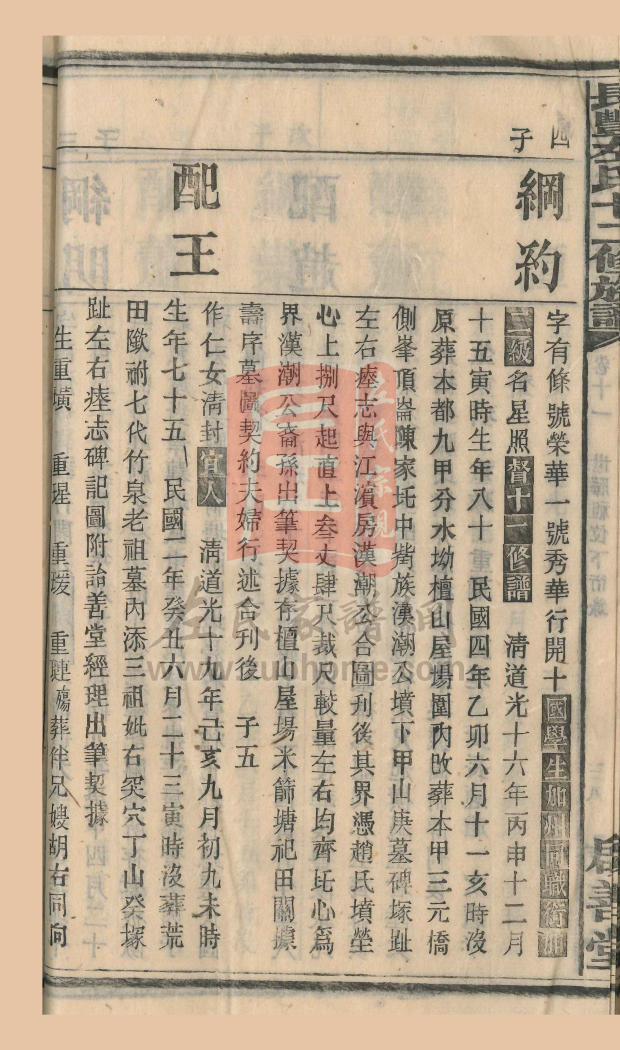 長豐左氏十二修族譜
卷十一 世歸
啟善堂
四子
綱約
字有條號榮華一號秀華行開十國學生加州同職銜加
二級名星照督十一修譜 清道光十六年丙申十二月
十五寅時生年八十 民國四年乙卯六月十一亥時沒
原葬本都九甲分水坳檀山屋場圍內改葬本甲三元橋
側峯頂崙陳家坵中嵴族漢潮公墳下甲山庚墓碑塚趾
左右瘞志與江濱房漢潮公合圖刋後其界憑趙氏墳塋
心上捌尺起值上叁丈肆尺裁尺較量左右均齊坵心爲
界漢潮公裔孫出筆契據存檀山屋場米篩塘祀田關據
壽序墓圖契約夫婦行述合刋後 子五
配王
作仁女清封宜人 清道光十九年己亥九月初九未時
生年七十五 民國二年癸丑六月二十三寅時沒葬荒
田隙祔七代竹泉老祖墓內添三祖妣右穴丁山癸塚
趾左右瘞志碑記圖附詒善堂經理出筆契據
生重墳 重瑆 重瑗 重璉殤葬伴兄嫂胡右同向
左氏家譜網
www.zuohome.com